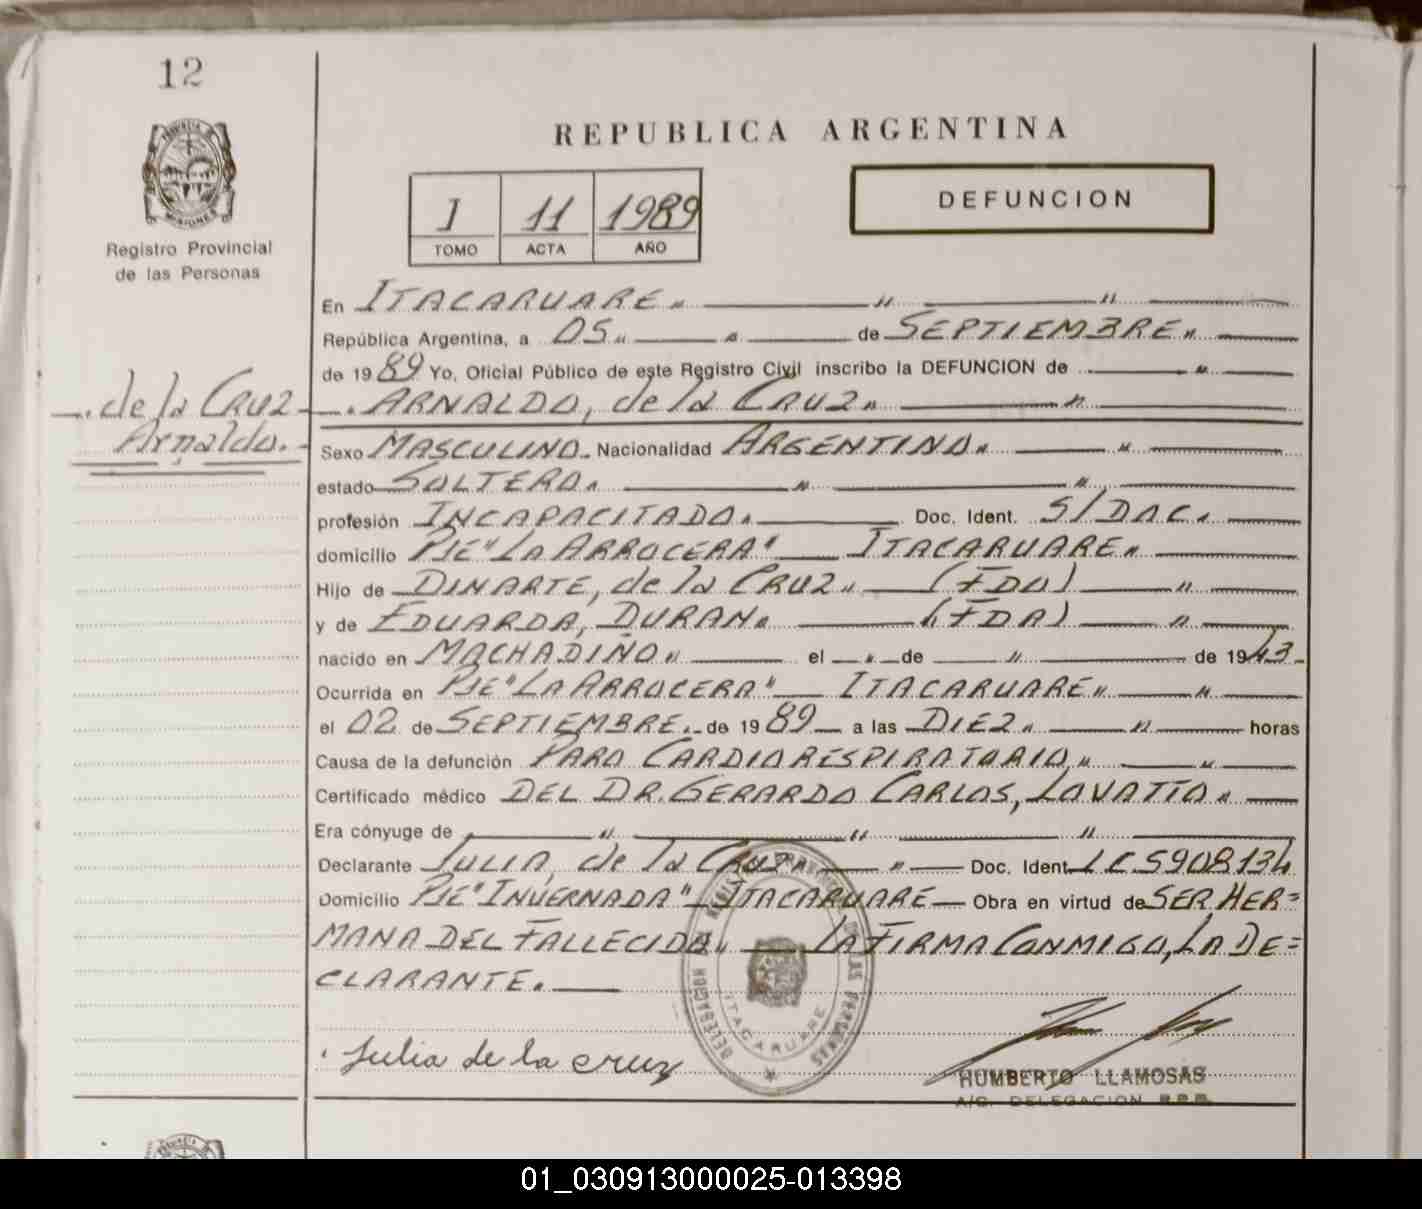 12
PROVINCIA DE
MISIONES
Registro Provincial
de las Personas
REPUBLICA ARGENTINA
I 11 1989
TOMO ACTA AÑO
DEFUNCION
En ITACARUARE " " "
República Argentina, a 05 " " de SEPTIEMBRE "
de 1989 Yo, Oficial Público de este Registro Civil inscribo la DEFUNCION de "
. ARNALDO, de la CRUZ " "
. de la CRUZ
Arnaldo. -
Sexo MASCULINO. Nacionalidad ARGENTINO " "
estado SOLTERO. " "
profesión INCAPACITADO. Doc. Ident. S/DOC.
domicilio PJE "LA ARROCERA" ITACARUARE "
Hijo de DINARTE, de la CRUZ " (FDO) "
y de EDUARDA, DURAN. (FDA) "
nacido en MACHADIÑO " el " de " de 1943 -
Ocurrida en PJE "LA ARROCERA" ITACARUARE " "
el 02 de SEPTIEMBRE. - de 1989 a las DIEZ " " horas
Causa de la defunción PARO CARDIORESPIRATORIO " "
Certificado médico DEL DR. GERARDO CARLOS, LOVATTO "
Era cónyuge de " " "
Declarante JULIA, de la CRUZ " " Doc. Ident. LC.5908134
Domicilio PJE "INVERNADA" ITACARUARE Obra en virtud de SER HER=
MANA DEL FALLECIDO " LA FIRMA CONMIGO, LA DE=
CLARANTE.
DELEGACION DEL REGISTRO PROVINCIAL DE LAS PERSONAS
ITACARUARE
Julia de la cruz
HUMBERTO LLAMOSAS
A/C. DELEGACION R.P.P.
01_030913000025-013398